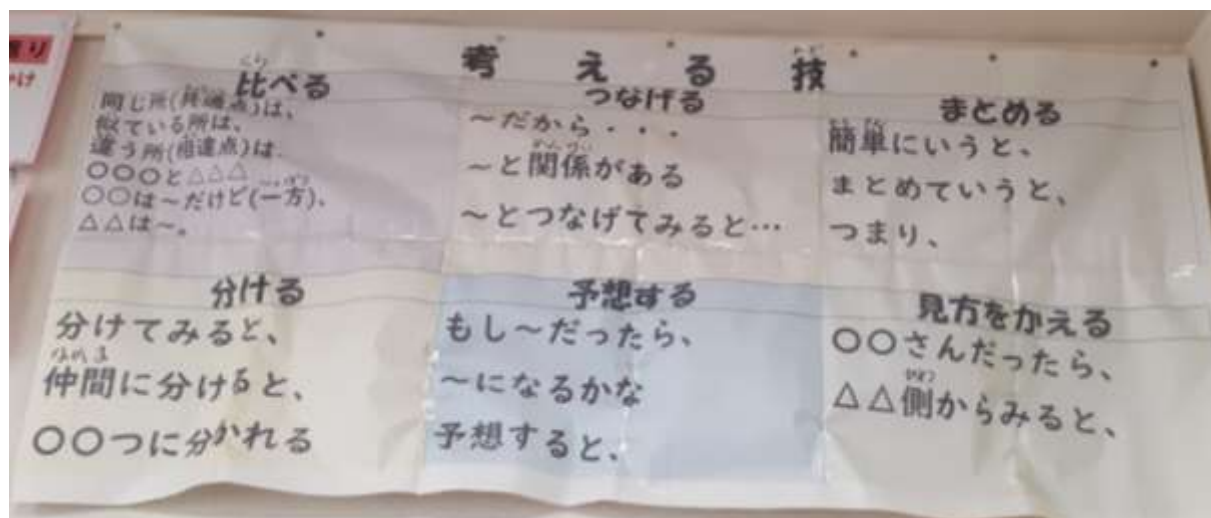 考える技
比べる
同じ所(共通点)は、
似ている所は、
違う所(相違点)は、
○○○と△△△
○○は～だけど(一方)、
△△は～。
つなげる
～だから・・・
～と関係がある
～とつなげてみると…
まとめる
簡単にいうと、
まとめていうと、
つまり、
分ける
分けてみると、
仲間に分けると、
○○つに分かれる
予想する
もし～だったら、
～になるかな
予想すると、
見方をかえる
○○さんだったら、
△△側からみると、